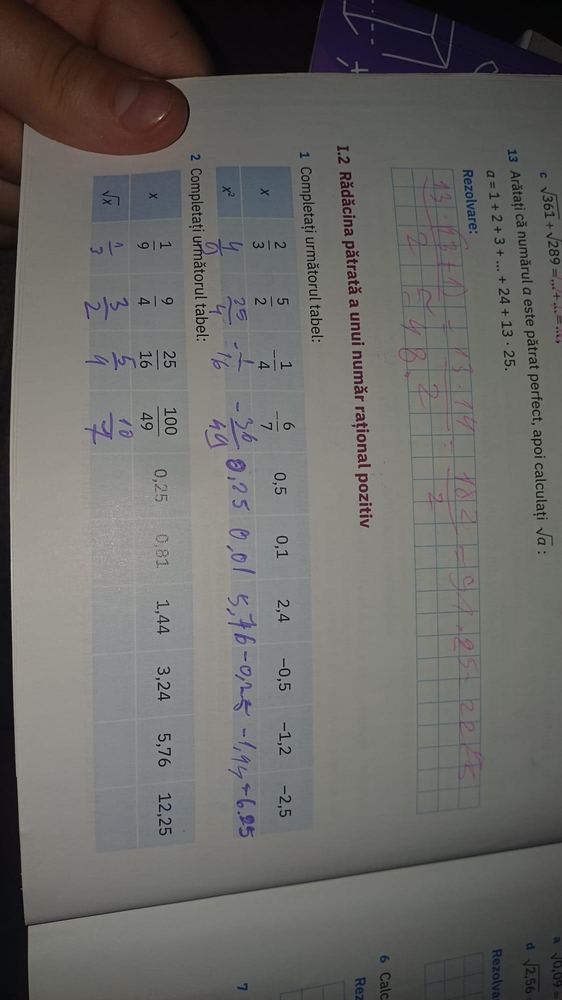 c √361 + √289 = ... + ... = ...
13 Arătați că numărul a este pătrat perfect, apoi calculați √a :
a = 1 + 2 + 3 + ... + 24 + 13 · 25.
Rezolvare:
I.2 Rădăcina pătrată a unui număr rațional pozitiv
1 Completați următorul tabel:
x 2/3 5/2 -1/4 -6/7 0,5 0,1 2,4 -0,5 -1,2 -2,5
x² 4/9 25/4 -1/16 -36/49 0,25 0,01 5,76 -0,25
2 Completați următorul tabel:
x 1/9 9/4 25/16 100/49 0,25 0,81 1,44 3,24 5,76 12,25
√x 1/3 3/2 5/4 10/7
a √0,09 =
d √2,56
Rezolva
6 Calc
7